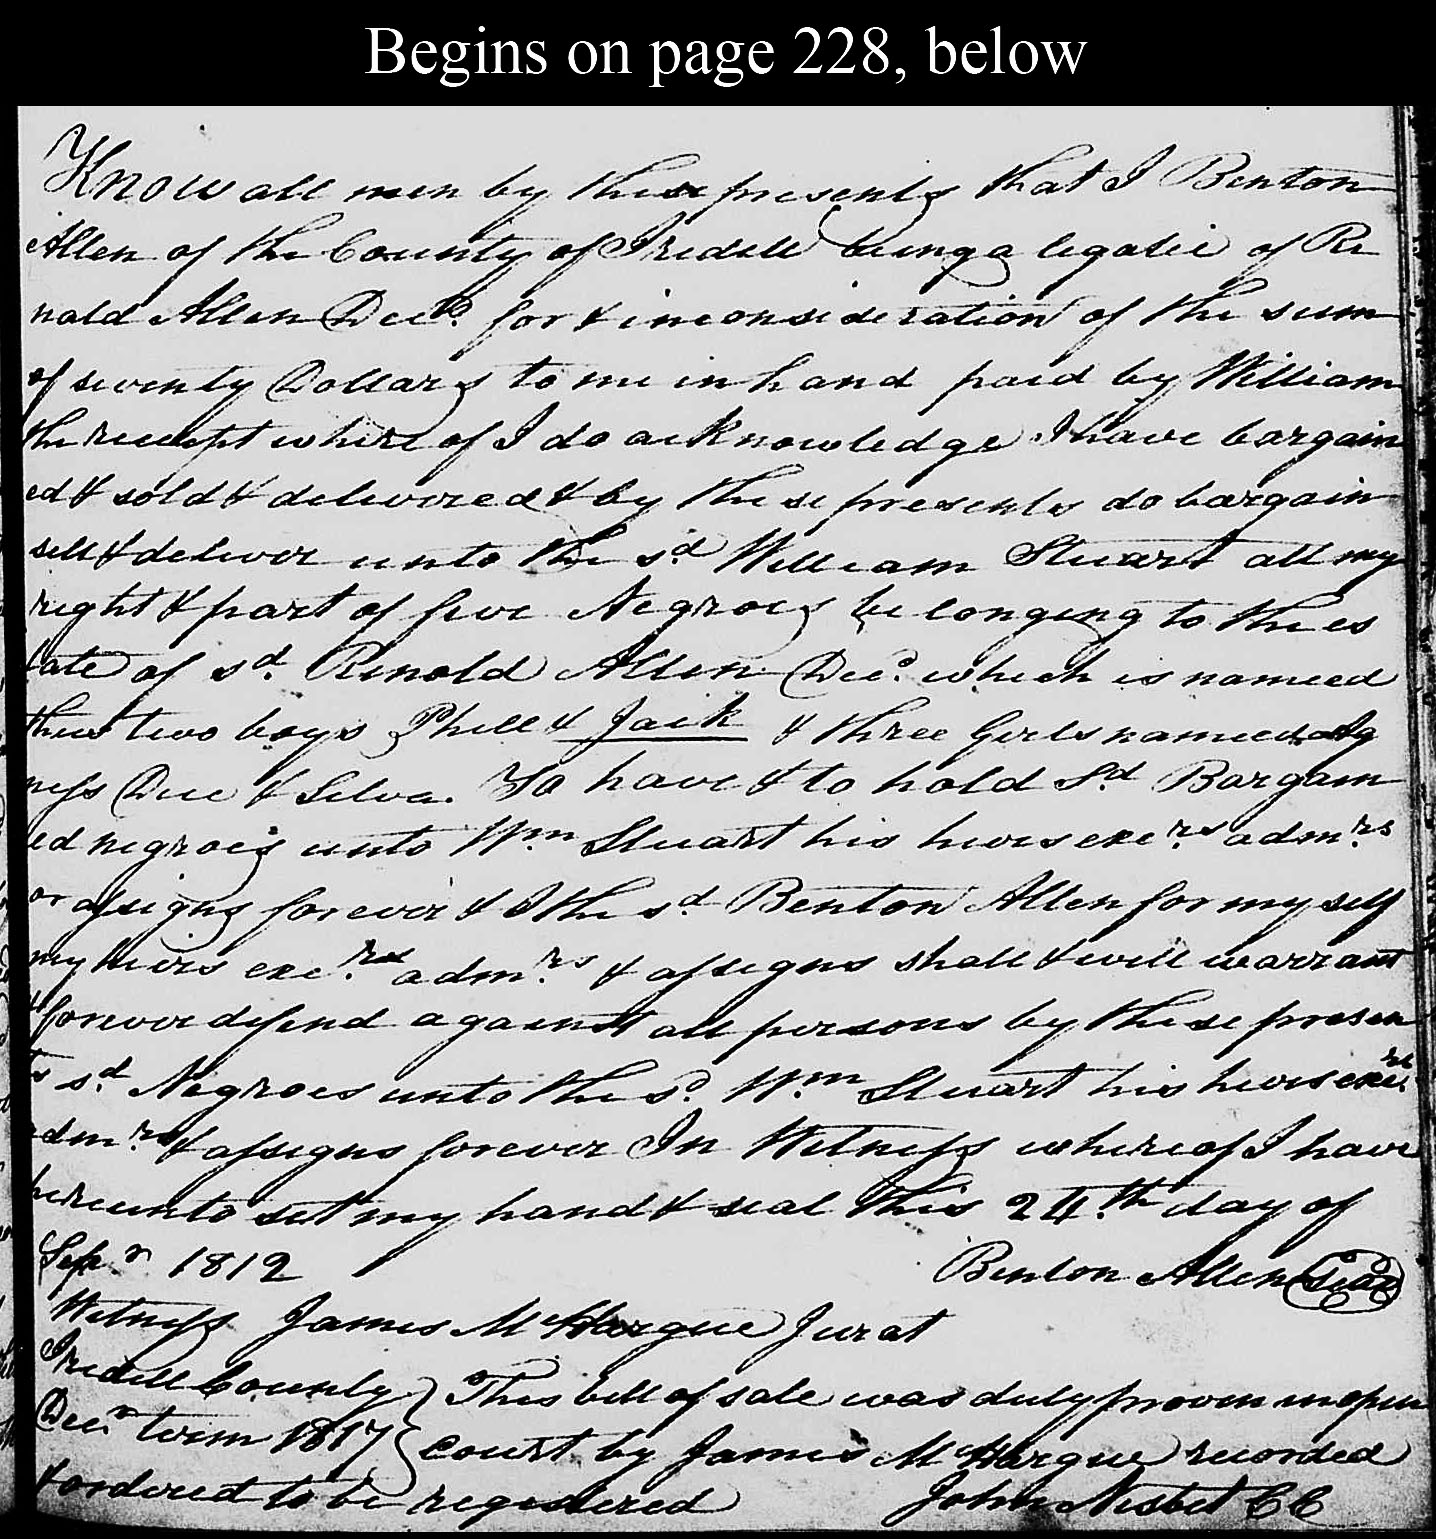 Begins on page 228, below
Know all men by these presents that I Benton
Allen of the County of Iredell being a legatie of Re
nold Allen Decd. for & in consideration of the sum
of seventy Dollars to me in hand paid by William
the receipt where of I do acknowledge I have bargain
ed & sold & delivered & by these presents do bargain
sell & deliver unto the sd. William Stuart all my
right & part of five Negroes belonging to the es
tate of sd. Renold Allen Decd. which is named
thus two boys Phill & Jack & three Girls named Ag
ness Due & Silva. To have & to hold Sd Bargain
ed negroes unto Wm Stuart his heirs exers. admrs.
or assigns forever & I the sd. Benton Allen for my self
my heirs exers. admrs. & assigns shall & will warrant
& forever defend against all persons by these presen
ts sd. Negroes unto the sd. Wm. Stuart his heirs exers.
admrs & assigns forever In Witness whereof I have
hereunto set my hand & seal this 24.th day of
Sepr. 1812 Benton Allen Seal
Witness James McHargue Jurat
Iredell County } This bill of sale was duly proven in open
Decr. term 1817 } Court by James McHargue recorded
& ordered to be registered John Nisbet CC